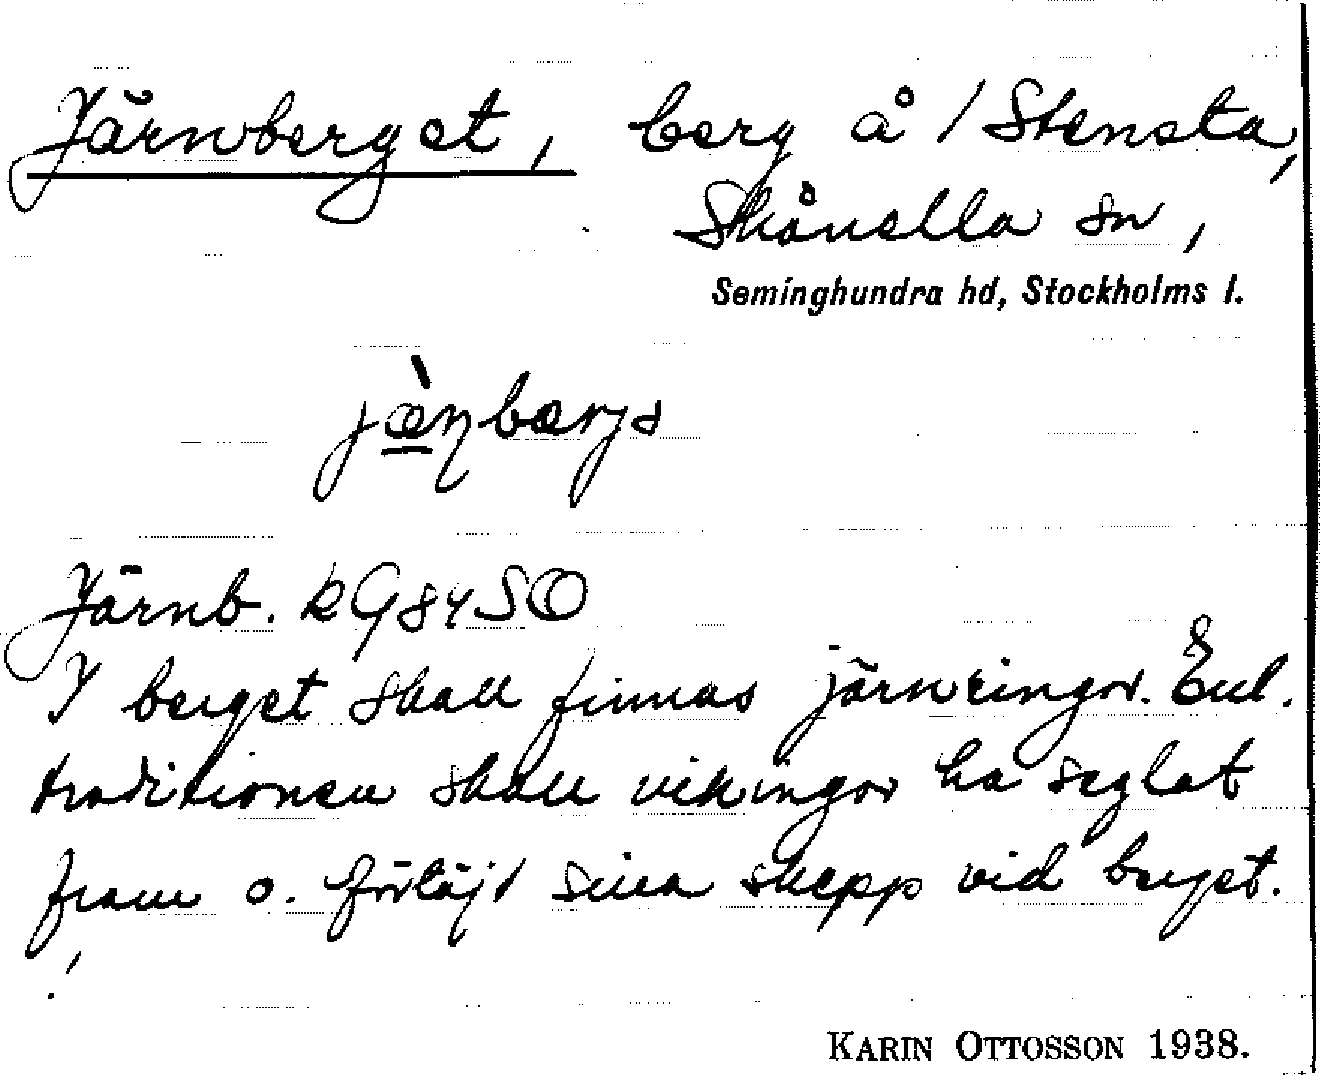 Järnberget, berg å / Stensta,
Skånella sn,
Seminghundra hd, Stockholms l.
jæ̀ɳbærjə
Järnb. RG84SO
I berget skall finnas järnringar. Enl.
traditionen skall vikingar ha seglat
fram o. förtöjt sina skepp vid berget.
KARIN OTTOSSON 1938.